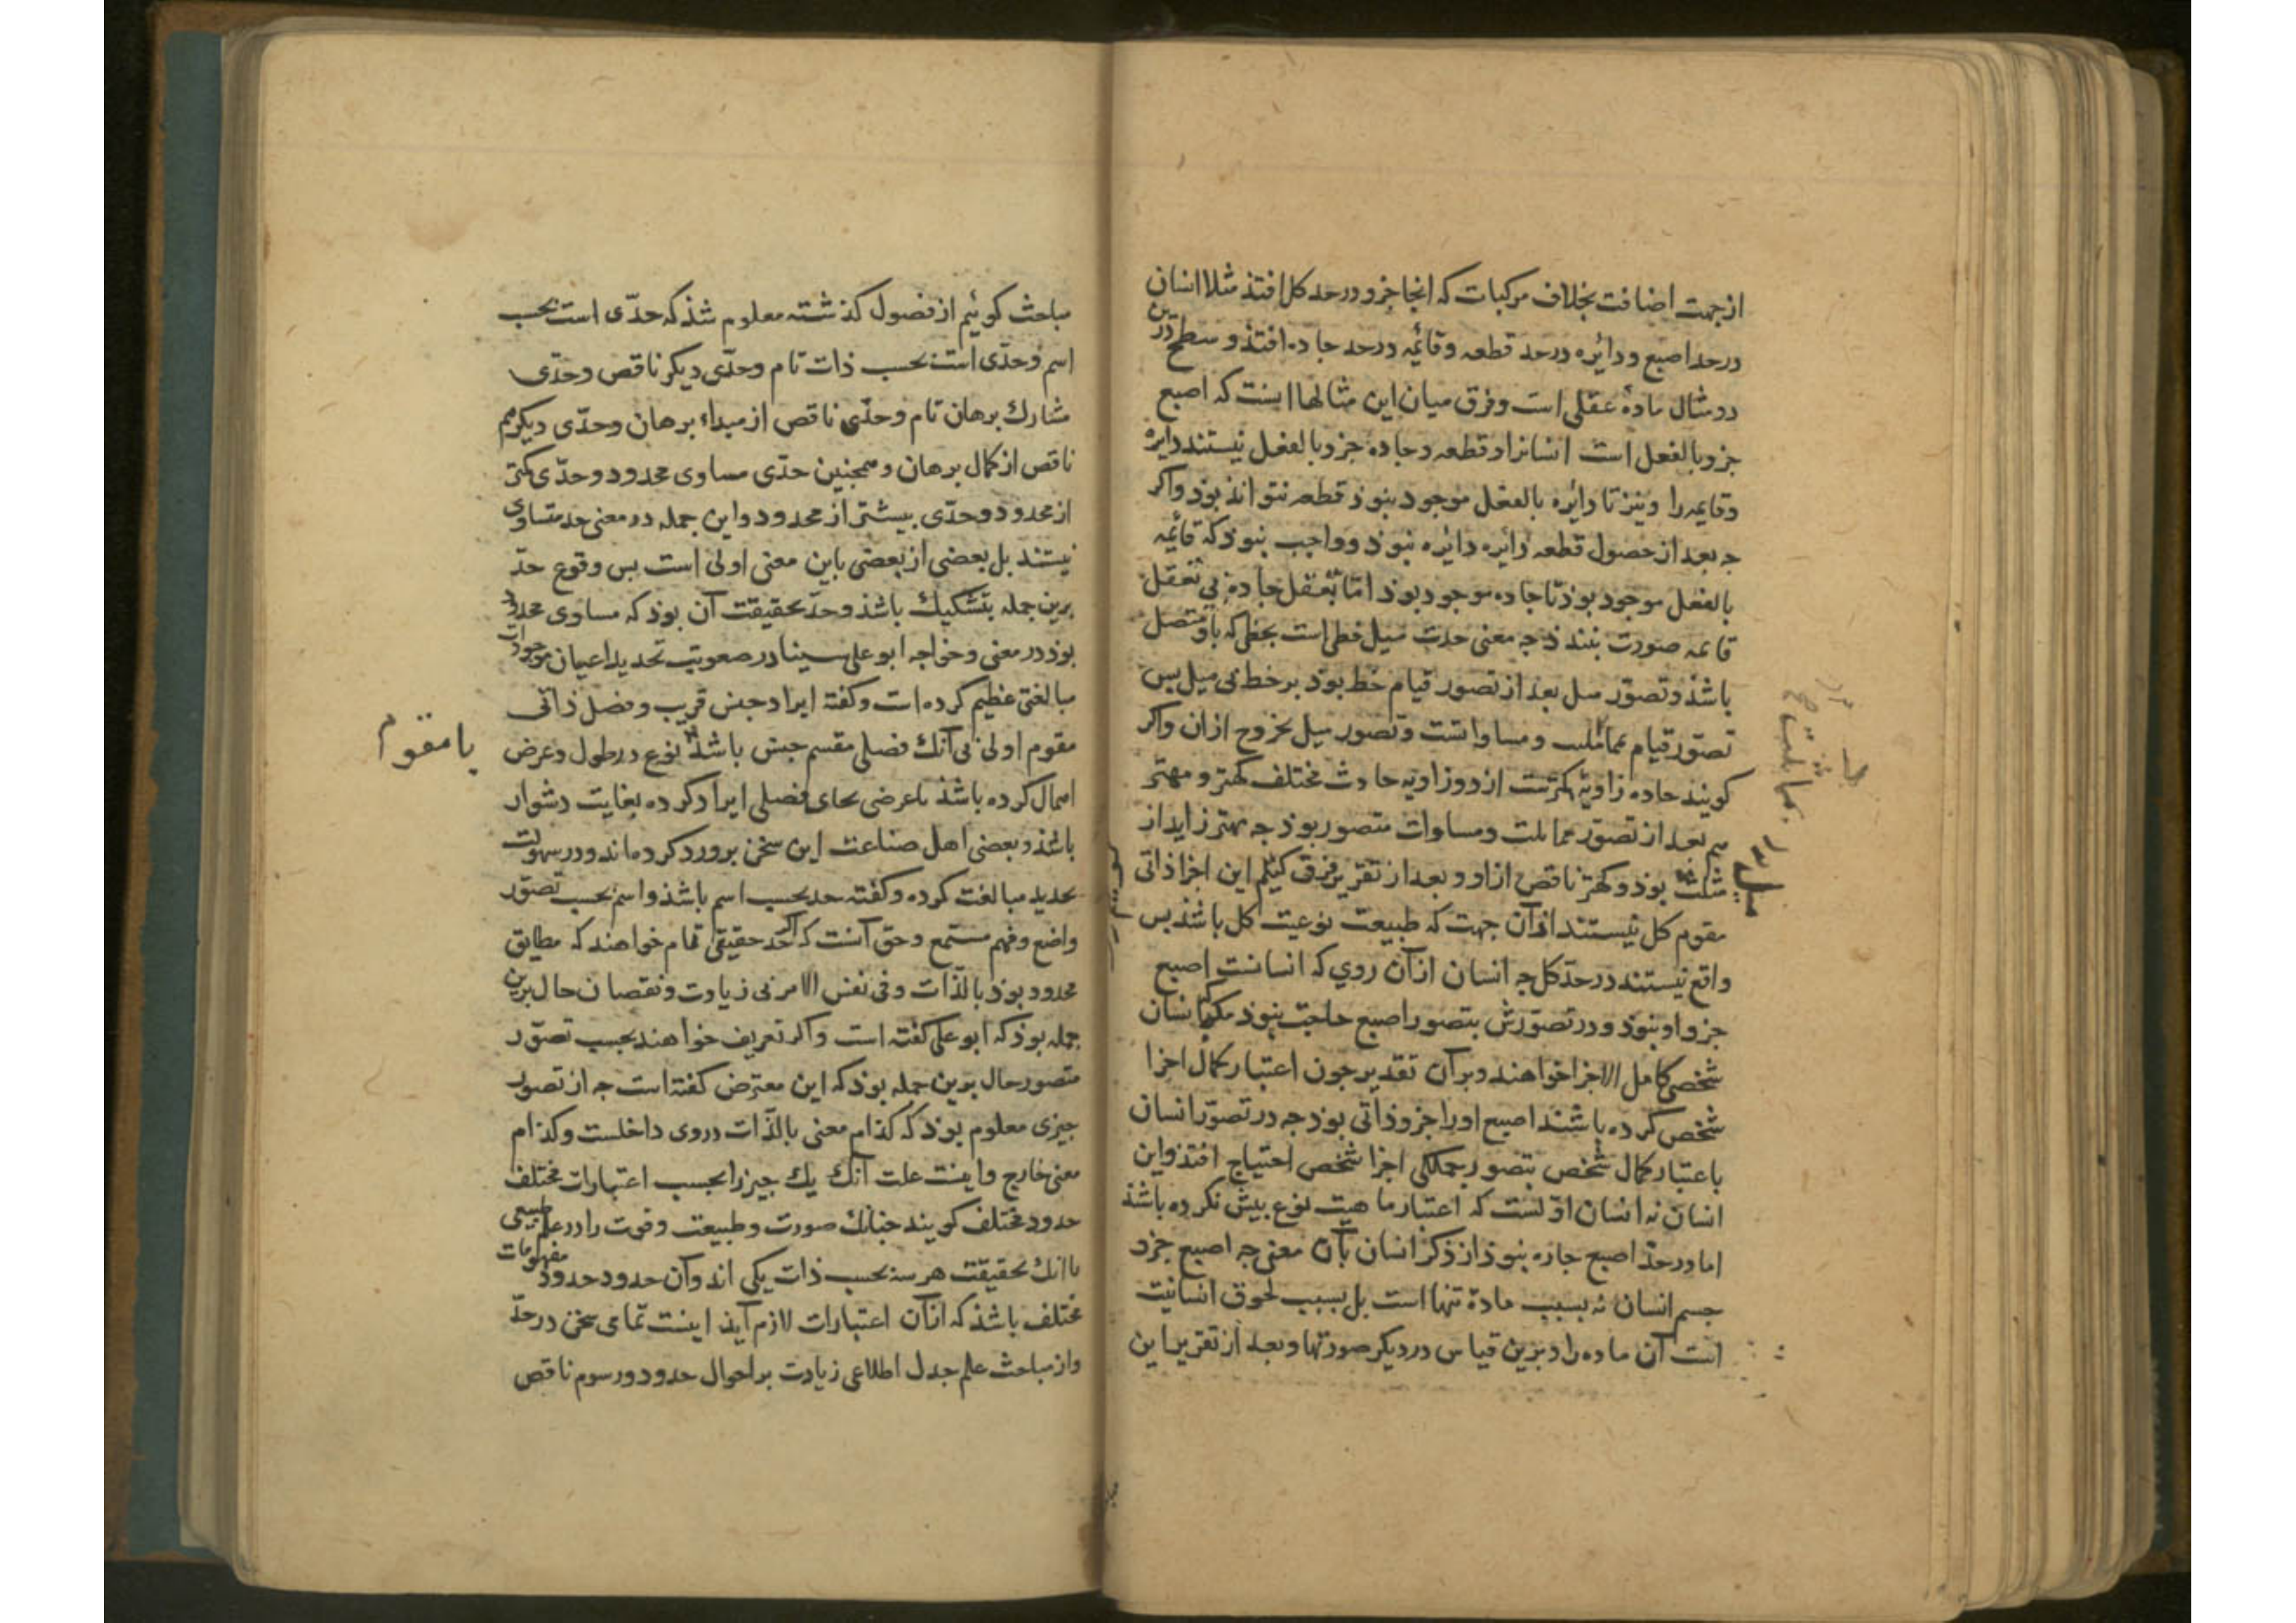 از جهت اضافت بخلاف مرکبات که انجا جزو در حد کل افتذ مثلا انسان
در حد اصبع و دائره در حد قطعه و قائمه در حد حاده افتذ و سطح درین
دو مثال مادهٔ عقلی است و فرق میان این مثالها اینست که اصبع
جزو بالفعل است انسانرا و قطعه و حاده جزو بالفعل نیستند دایره
و قایمه را و نیز تا دائره بالفعل موجود نبوذ قطعه نتواند بوذ و اکر
جه بعد از حصول قطعه دائره دائره نبوذ و واجب نبوذ که قائمه
بالفعل موجود بوذ تا حاده موجود بوذ امّا تعقل حاده بی تعقل
قائمه صورت نبندذ جه معنی حدت میل خطی است بخطی که باو متصل
باشذ و تصوّر میل بعد از تصور قیام خط بوذ بر خط بی میل بس
تصوّر قیام بمماثلت و مساواتست و تصور میل بخروج ازان و اکر
کویند حاده زاویهٔ کهترست از دو زاویه حادث مختلف کهتر و مهتر
هم بعد از تصوّر مماثلت و مساوات متصور بوذ جه مهتر زاید از
مثل بوذ و کهتر ناقص ازاو و بعد از تقریر فرق کوئیم این اجزا ذاتی
مقوم کل نیستند ازآن جهت که طبیعت نوعیت کل باشذ بس
واقع نیستند در حدّ کل جه انسان ازآن روی که انسانست اصبع
جزو او نبوذ و در تصوّرش بتصور اصبع حاجت نبوذ مکر که بانسان
شخصی کامل الاجزا خواهند و برآن تقدیر جون اعتبار کمال اجزا
شخص کرده باشند اصبع اورا جزو ذاتی بوذ جه در تصوّر انسان
باعتبار کمال شخص بتصور جملکی اجزا شخص احتیاج افتذ و این
انسان نه انسان اوّلست که اعتبار ماهیت نوع بیش نکرده باشذ
اما در حدّ اصبع جاره نبوذ از ذکر انسان بآن معنی جه اصبع جزو
جسم انسان نه بسبب مادهٔ تنها است بل بسبب لحوق انسانیت
است آن ماده را و برین قیاس در دیکر صورتها و بعد از تقریر این
بمماثلت
مباحث کوئیم از فصول کذشته معلوم شذ که حدّی است بحسب
اسم و حدّی است بحسب ذات تام و حدّی دیکر ناقص و حدّی
مشارک برهان تام و حدّی ناقص از مبداء برهان و حدّی دیکر هم
ناقص از کمال برهان و همجنین حدّی مساوی محدود و حدّی کمتر
از محدود و حدّی بیشتر از محدود و این جمله در معنی حد متساوی
نیستند بل بعضی از بعضی باین معنی اولی است بس وقوع حدّ
برین جمله بتشکیک باشذ و حدّ بحقیقت آن بوذ که مساوی محدود
بوذ در معنی و خواجه ابو علی سینا در صعوبت تحدید اعیان موجودات
مبالغتی عظیم کرده است و کفته ایراد جنس قریب و فصل ذاتی
مقوم اولی بی آنک فصلی مقسم جنس باشذ یا نوع در طول و عرض
اهمال کرده باشذ یا عرضی بجای فصلی ایراد کرده بغایت دشوار
باشذ و بعضی اهل صناعت این سخن برو رد کرده‌اند و در سهولت
تحدید مبالغت کرده و کفته حد بحسب اسم باشذ و اسم بحسب تصوّر
واضع و فهم مستمع و حق آنست که اکر حد حقیقی تمام خواهند که مطابق
محدود بوذ بالذّات و فی نفس الامر بی زیادت و نقصان حال برین
جمله بوذ که ابو علی کفته است و اکر تعریف خواهند بحسب تصوّر
متصور حال برین جمله بوذ که این معترض کفته است جه از تصور
جیزی معلوم بوذ که کذام معنی بالذّات در وی داخلست و کذام
معنی خارج و اینست علت آنک یک جیز را بحسب اعتبارات مختلف
حدود مختلف کویند جنانک صورت و طبیعت و قوت را در علم طبیعی
با آنک بحقیقت هر سه بحسب ذات یکی اند و آن حدود حدود مفهومات
مختلف باشذ که ازآن اعتبارات لازم آیذ اینست تمامی سخن در حدّ
و از مباحث علم جدل اطلاعی زیادت بر احوال حدود و رسوم ناقص
یا مقوم